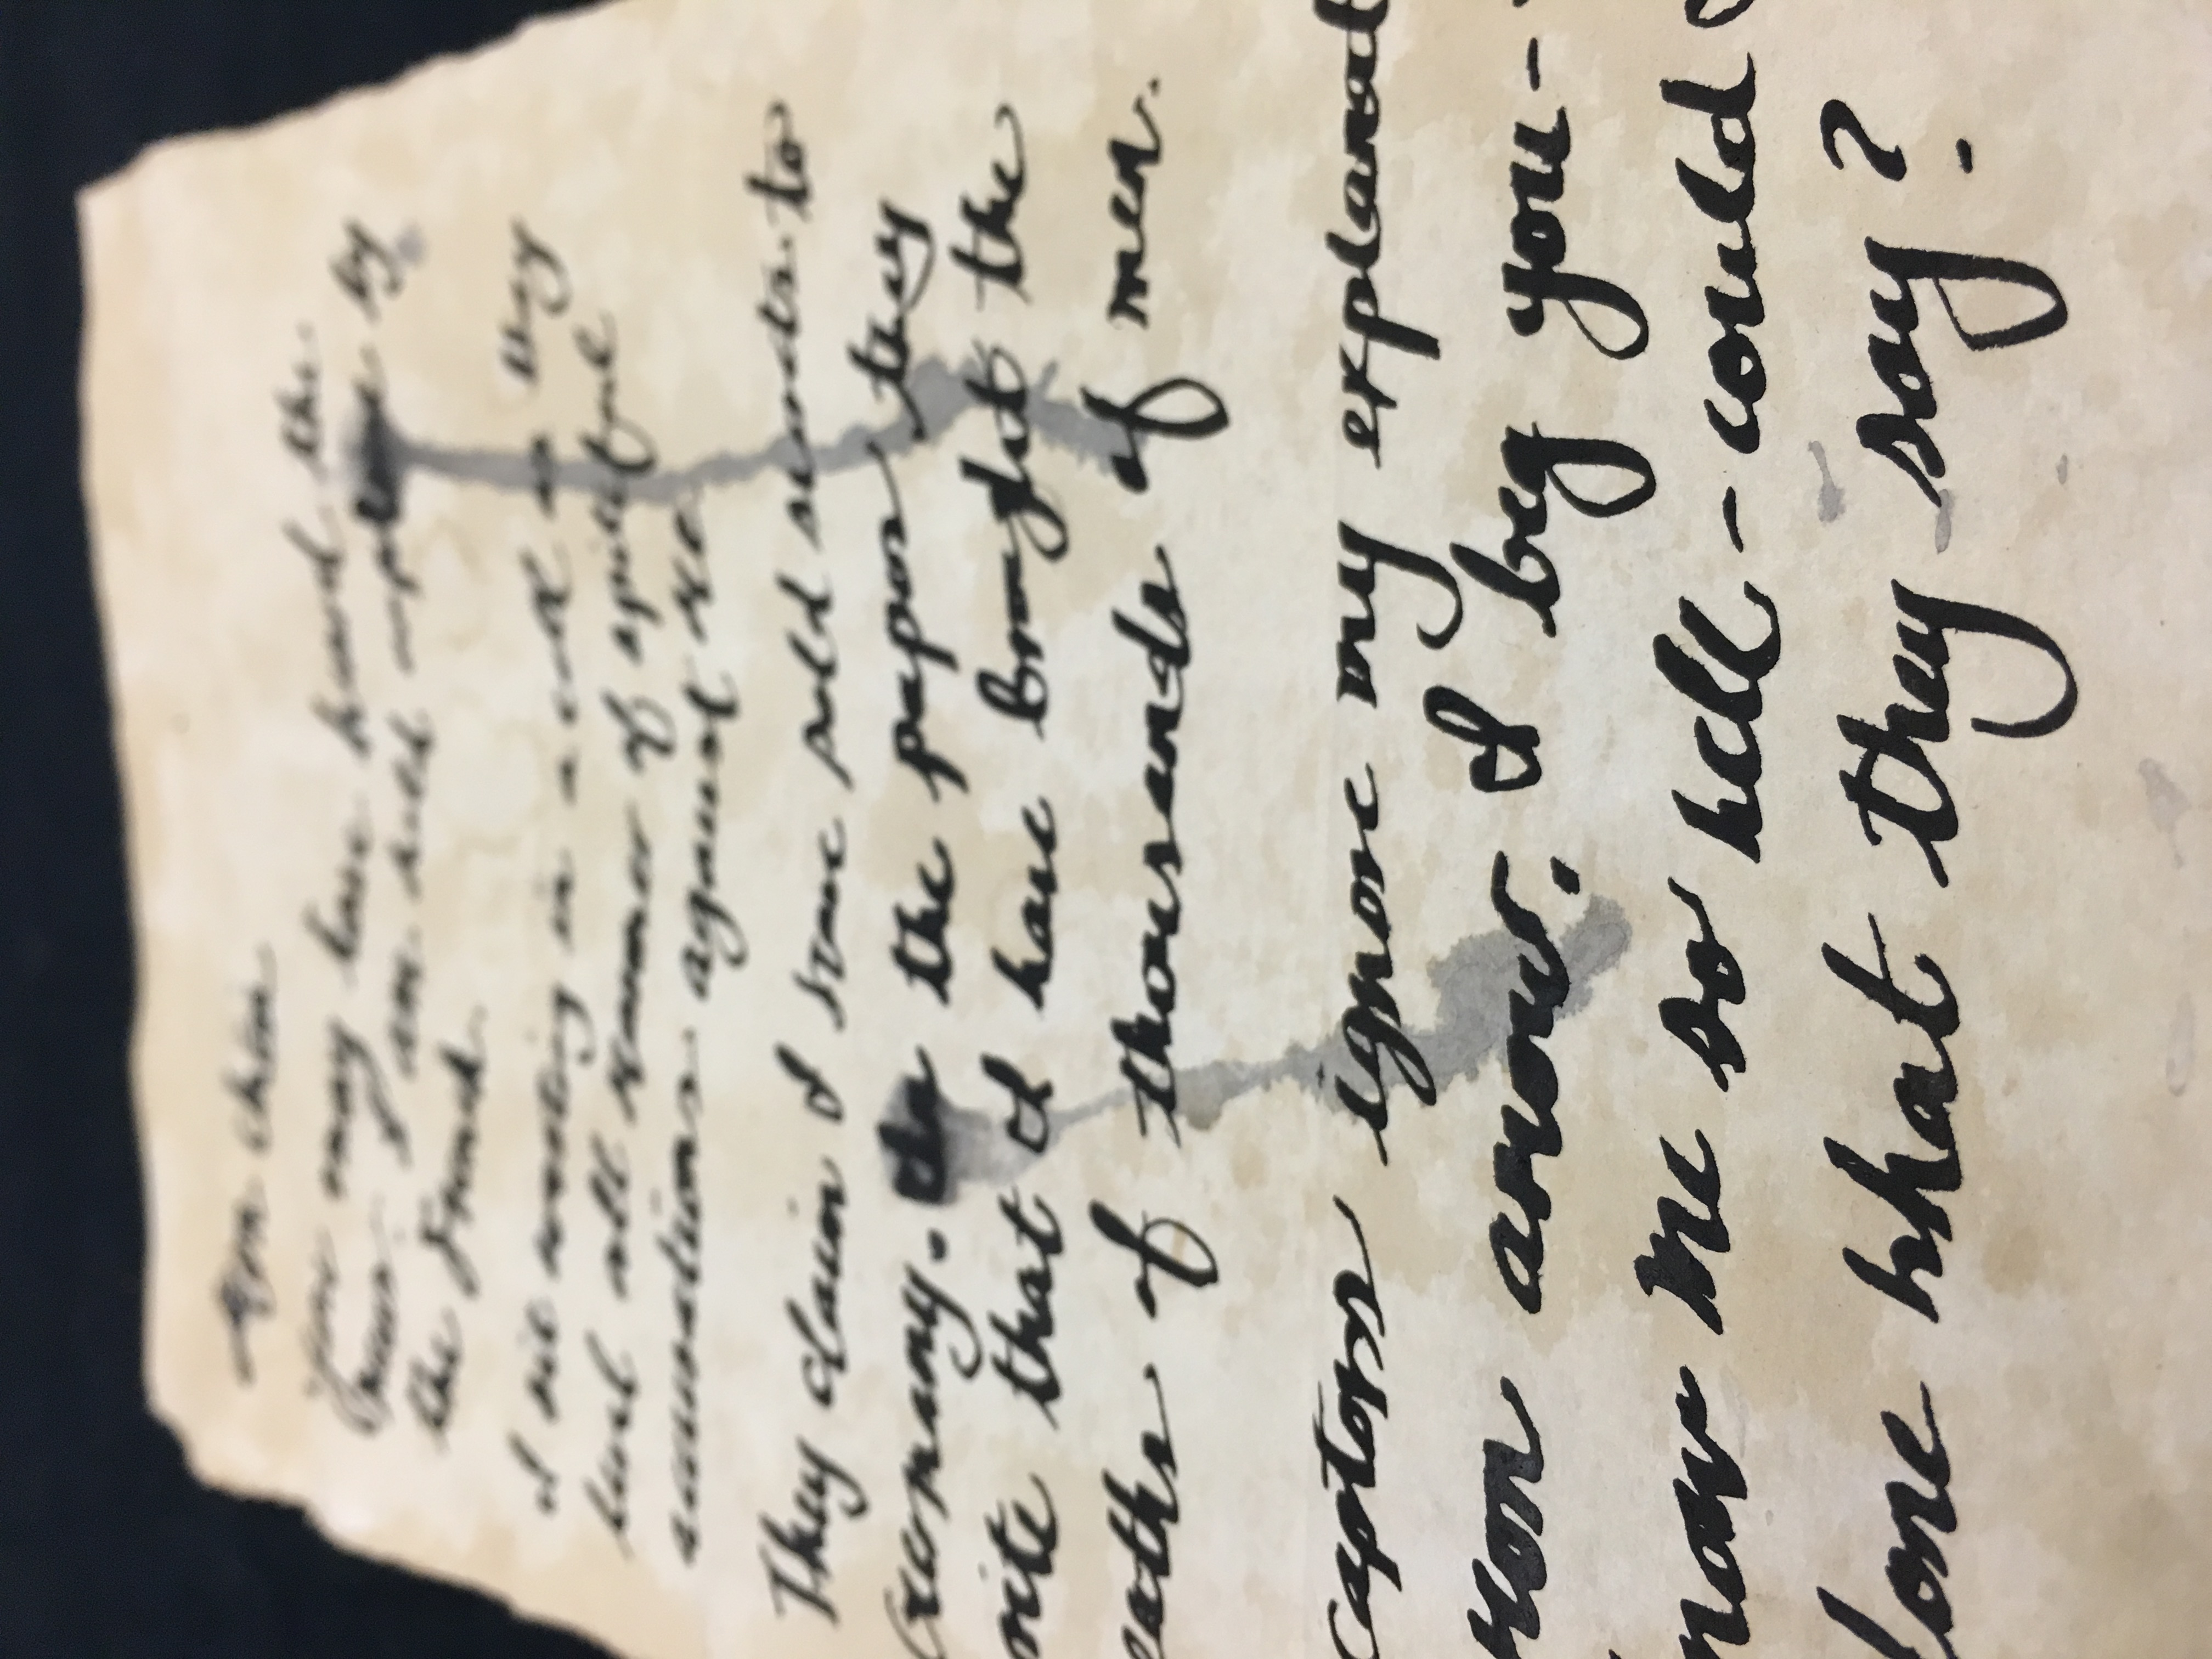 Mon chér
You may have heard the
news. I am held captive by
the French.
I sit waiting in a cell as they
level all manner of spiteful
accusations against me
They claim I have sold secrets to
Germany. In the papers they
rite that I have brought the
eaths of thousands of men.
captors ignore my explanat
arrow. I beg you-
now me so well - could I
done what they say?